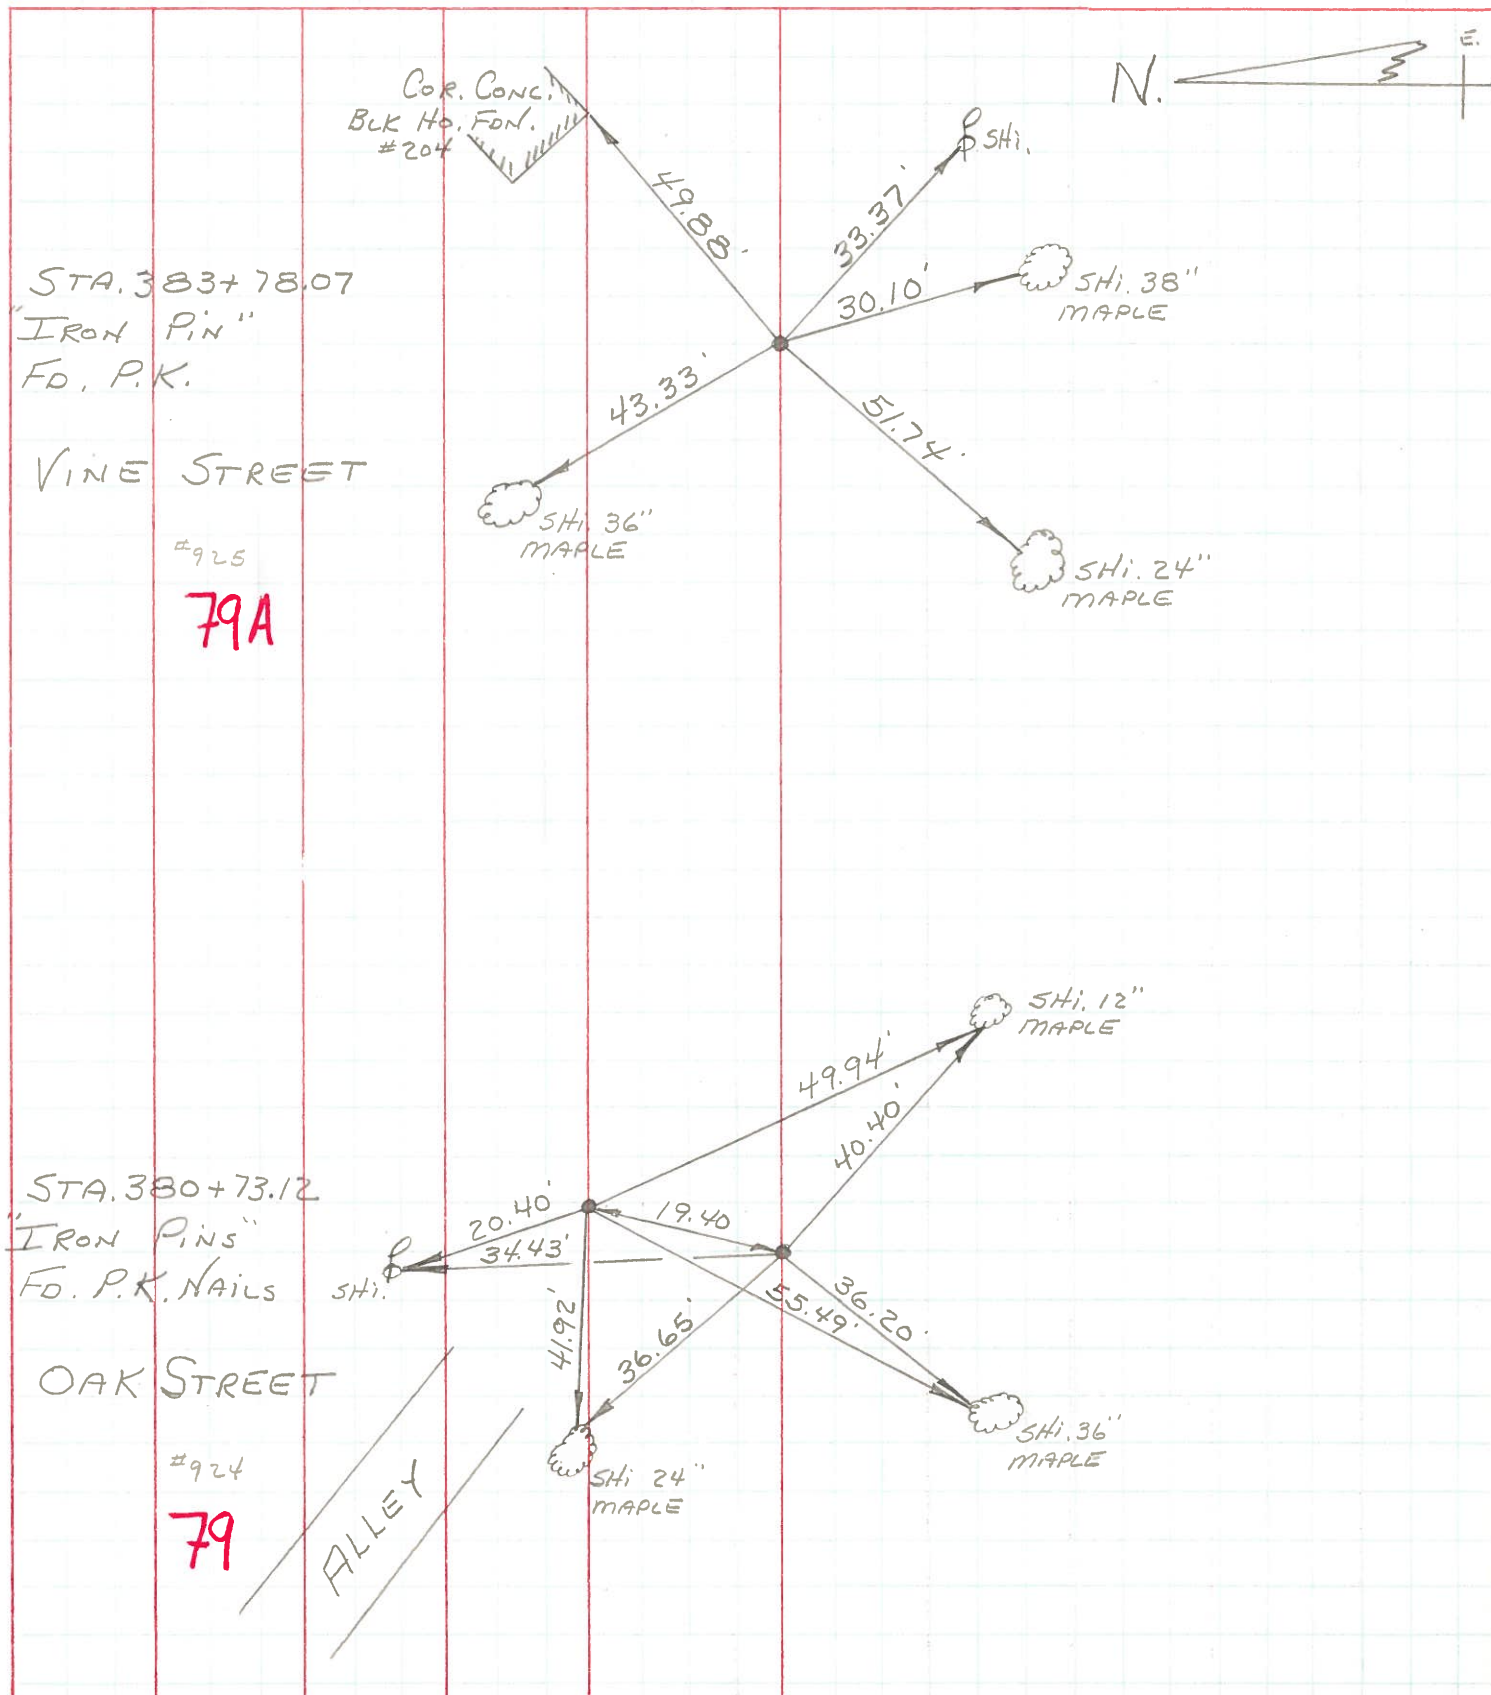 N.
E.
COR. CONC.
BLK HO. FDN.
#204
SHi.
49.88'
33.37'
30.10'
SHi. 38"
MAPLE
STA. 383+78.07
"IRON PiN"
FD. P.K.
43.33'
51.74'
VINE STREET
SHi. 36"
MAPLE
SHi. 24"
MAPLE
#925
79A
SHi. 12"
MAPLE
49.94'
40.40'
STA. 380+73.12
"IRON PiNS"
FD. P.K. NAiLS
20.40'
19.40
34.43'
SHi.
41.92'
36.65'
55.49'
36.20'
OAK STREET
SHi. 36"
MAPLE
#924
SHi 24"
MAPLE
79
ALLEY